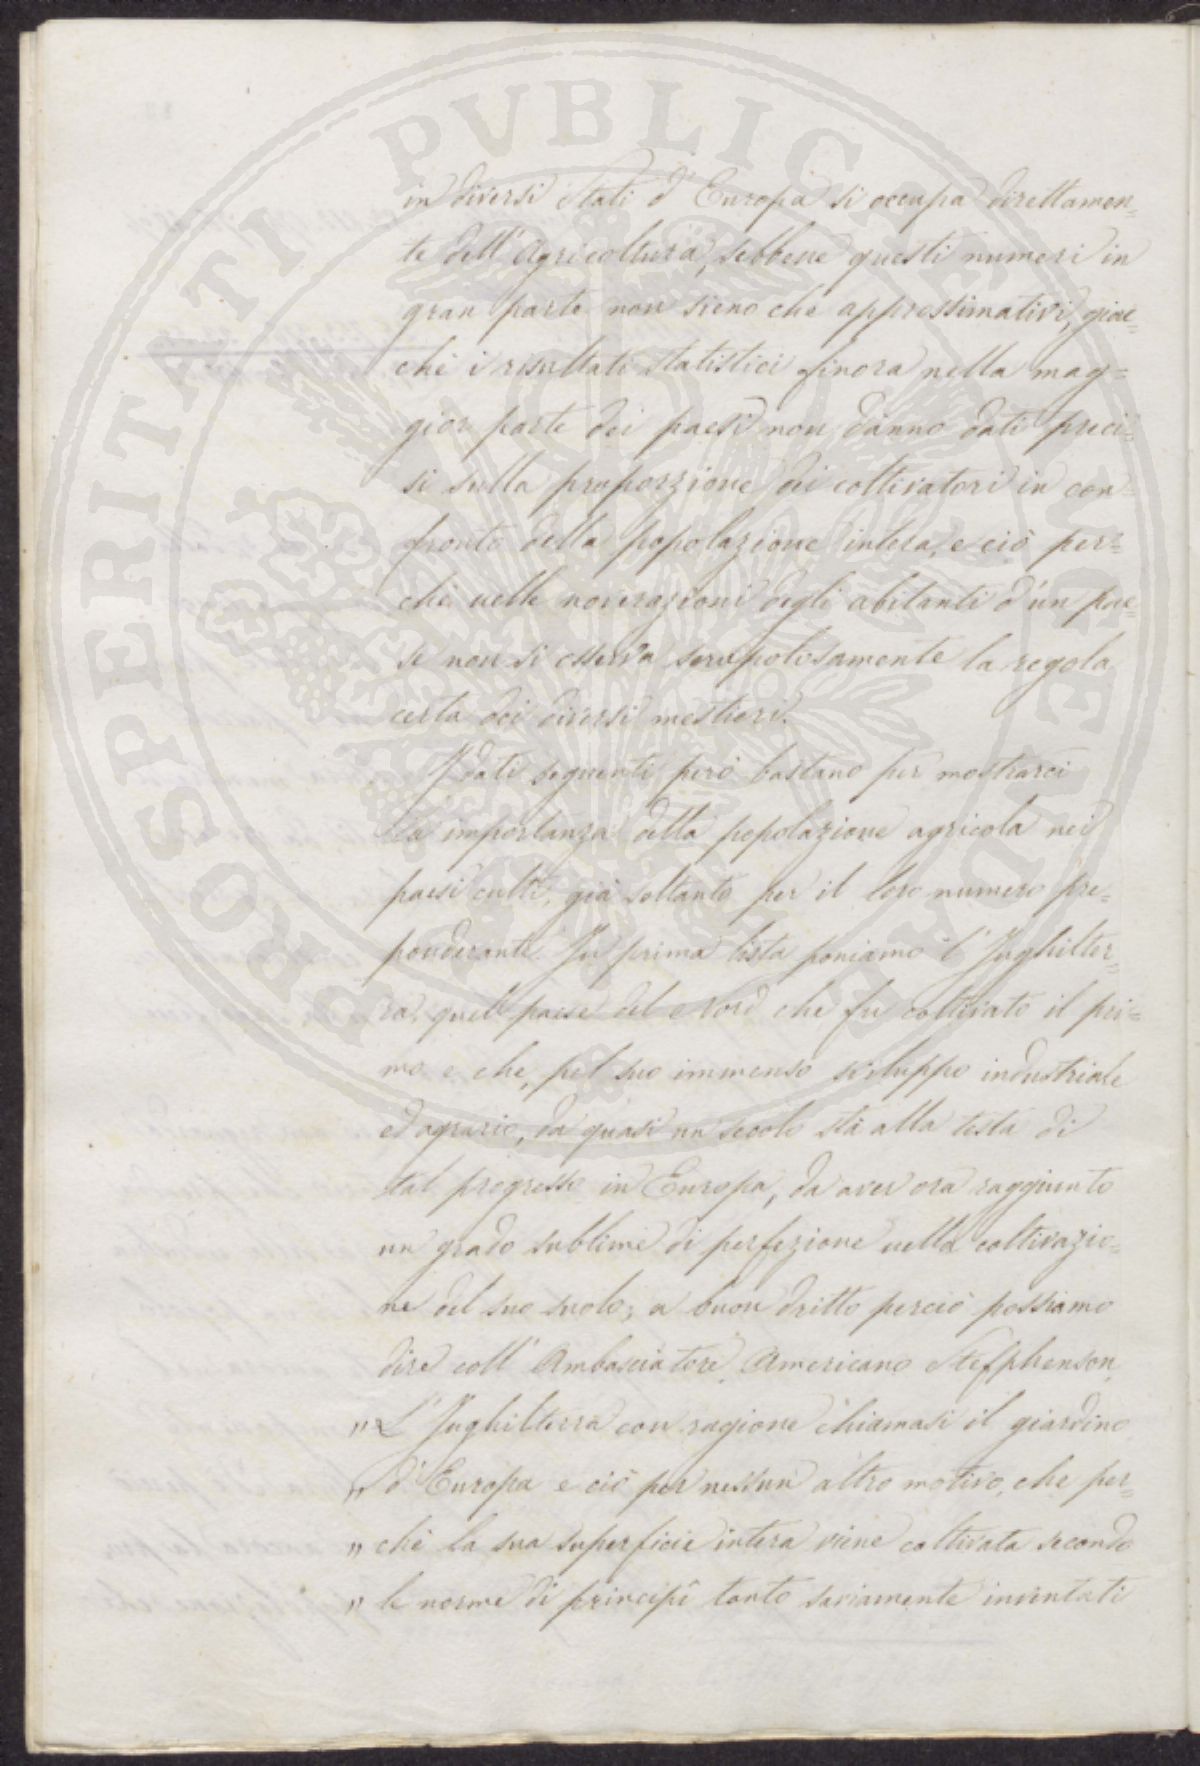 in diversi Stati d'Europa si occupa direttamen=
te dell'Agricoltura, sebbene questi numeri in
gran parte non sieno che approssimativi, giac=
chè i risultati statistici finora nella mag=
gior parte dei paesi non danno dati preci=
si sulla proporzione dei coltivatori in con=
fronto della popolazione intera, e ciò per=
chè nelle noverazioni degli abitanti d'un pae=
se non si osserva scrupolosamente la regola
certa dei diversi mestieri.
I dati seguenti però bastano per mostrarci
la importanza della popolazione agricola nei
paesi culti, già soltanto per il loro numero pre=
ponderante. In prima lista poniamo l'Inghilter=
ra, quel paese del Nord che fu coltivato il pri=
mo e che, pel suo immenso sviluppo industriale
ed agrario, da quasi un secolo stà alla testa di
tal progresso in Europa, da aver ora raggiunto
un grado sublime di perfezione nella coltivazio=
ne del suo suolo; a buon dritto perciò possiamo
dire coll'Ambasciatore Americano Stefphenson
„ L'Inghilterra con ragione chiamasi il giardino
„ d'Europa e ciò per nessun altro motivo, che per=
„ chè la sua superficie intera viene coltivata secondo
„ le norme di principî tanto saviamente inventati
PROSPERITATI PVBLICAE AVGENDAE